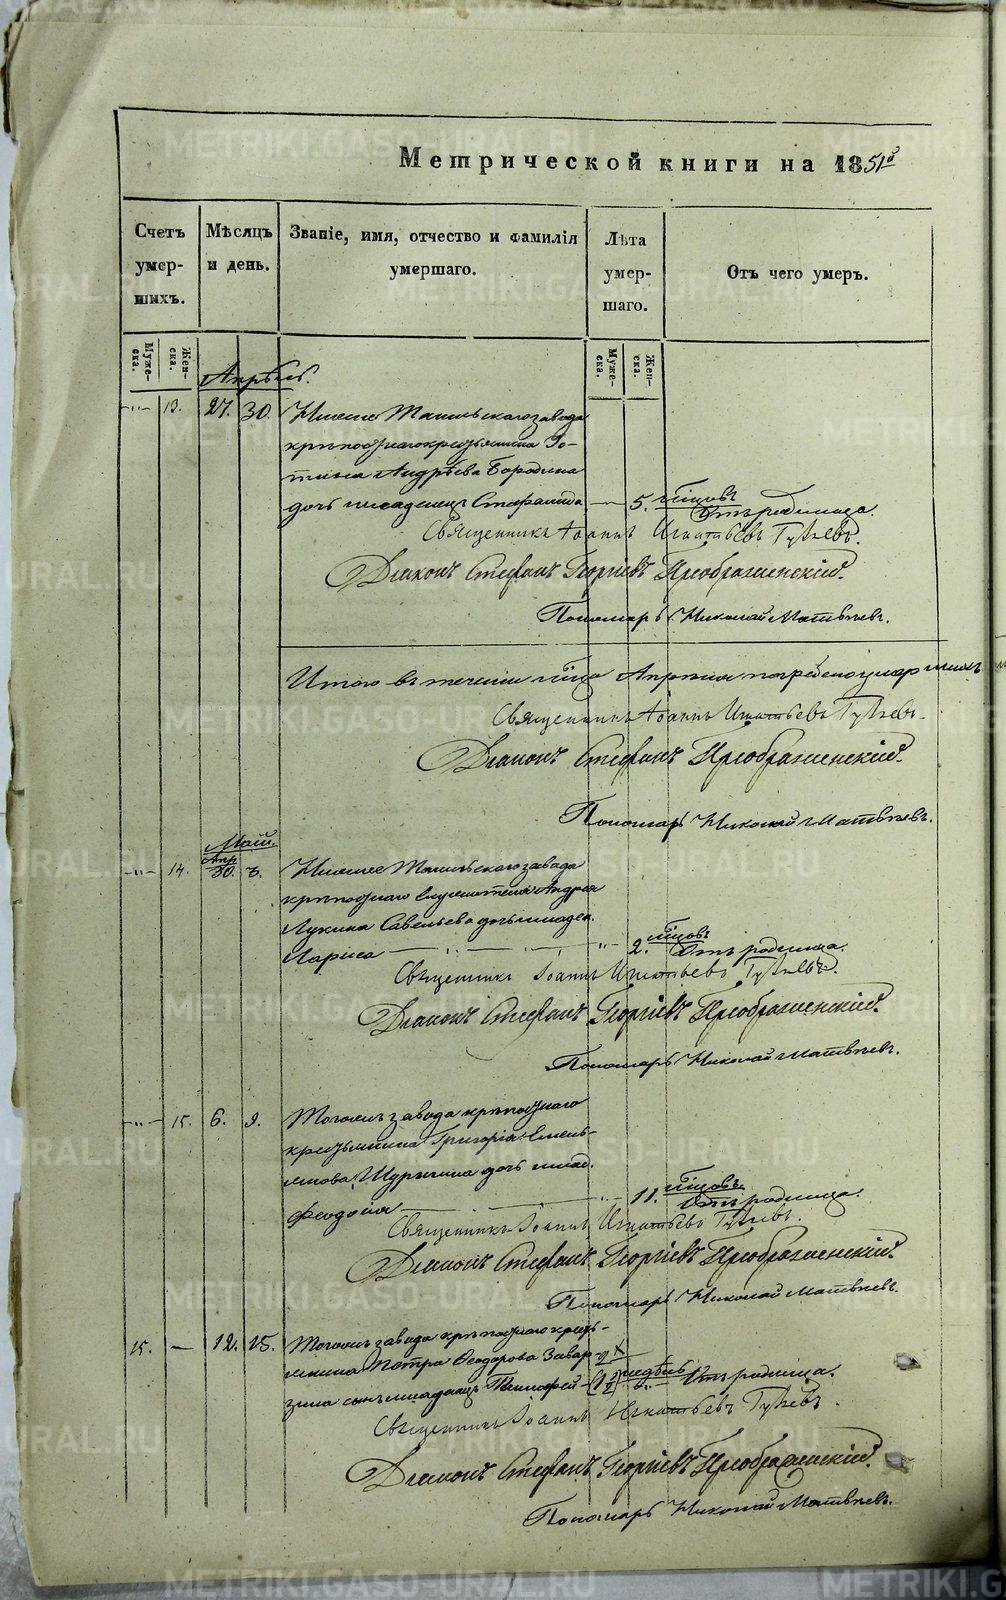 Метрической книги на 1851й
Счетъ умер- шихъ.
Мѣсяцъ и день.
Званіе, имя, отчество и фамилія умершаго.
Лѣта умер- шаго.
Отъ чего умеръ.
Муже- ска.
Жен- ска.
Муже- ска.
Жен- ска.
Апрѣль.
13. 27. 30. Нижне Тагильскаго завода
крѣпостнаго крестьянина Фо-
тина Андрѣева Бородина
дочь младенецъ Стефанида 5. мѣсяцовъ Отъ родимца.
Священникъ Іоаннъ Игнатьевъ
Діаконъ Стефанъ Георгіевъ Преображенскій.
Пономарь Николай Матвѣевъ.
Итого въ теченіи мѣсяца Апрѣля погребено умершихъ
Священникъ Іоаннъ Игнатьевъ
Діаконъ Стефанъ Преображенскій.
Пономарь Николай Матвѣевъ.
Май.
Апр
14. 30. Нижне Тагильскаго завода
крѣпостнаго служителя Андрея
Лукина Савельева дочь младен.
Лариса 2. мѣсяцовъ Отъ родимца.
Священникъ Іоаннъ Игнатьевъ
Діаконъ Стефанъ Георгіевъ Преображенскій.
Пономарь Николай Матвѣевъ.
15. 6. 9. Тогожъ завода крѣпостнаго
крестьянина Григорія Емель-
янова дочь млад.
Феодосія 11. мѣсяцовъ. Отъ родимца.
Священникъ Іоаннъ Игнатьевъ
Діаконъ Стефанъ Георгіевъ Преображенскій.
Пономарь Николай Матвѣевъ.
15. — 12. 15. Тогожъ завода крѣпостнаго кресть-
янина Петра Ѳеодорова Завар-
зина сынъ младенецъ Тимофей недѣль Отъ родимца.
Священникъ Іоаннъ Игнатьевъ
Діаконъ Стефанъ Георгіевъ Преображенскій.
Пономарь Николай Матвѣевъ.
METRIKI.GASO-URAL.RU